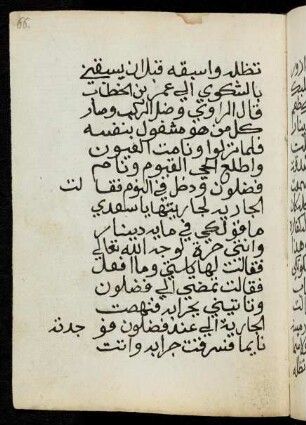 66.
تظلم واسبقه قبل ان يسبقني
بالشكوي الي عمر بن الخطاب
قال الراوي وصل الركب وصار
كل من هو مشغول بنفسه
فلما نزلوا ونامت العيون
واطلع الحي القيوم ونام
فضلون ودخل في النوم فقالت
الجارية لجاريتها يا سعدي
ما قولكي في ماية دينار
وانتي حرة لوجه الله تعالي
فقالت لها يا ستي وما افعل
فقالت تمضي الي فضلون
وتاتيني بجرابه فنهضت
الجارية الي عند فضلون فوجدته
نايما فسرقت جرابه واتت